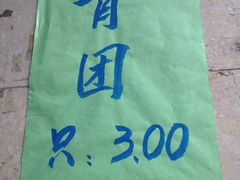 青
团
只：3.00